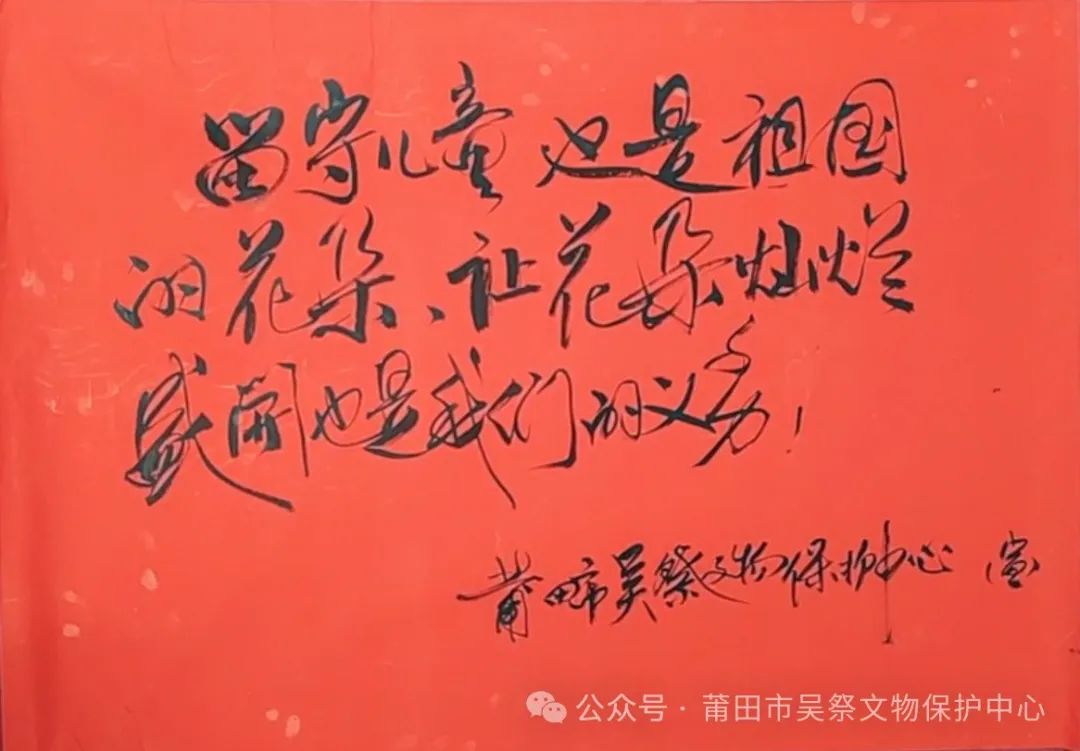 留守儿童也是祖国
的花朵、让花朵灿烂
盛开也是我们的义务!
莆田市吴祭文物保护中心 宣
公众号·莆田市吴祭文物保护中心